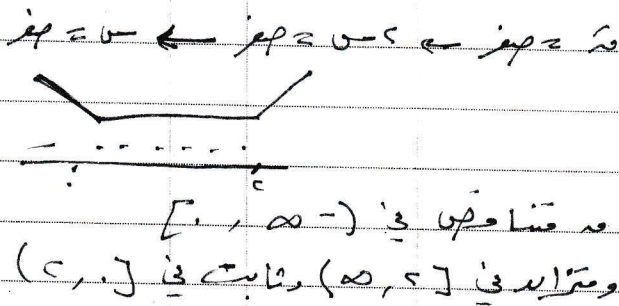 قَ = صفر ← ٢س = صفر ← س = صفر
- . . . . . . .
٠ ٢
ق متناقص في (-∞ ، ٠]
ومتزايد في [٢ ، ∞) وثابت في [٠ ، ٢)